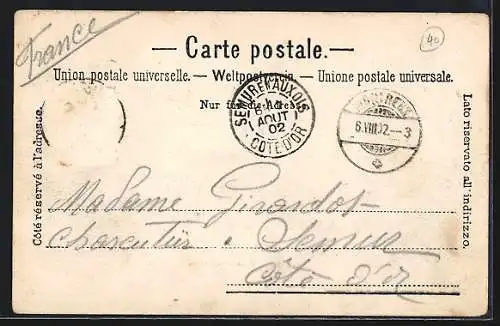 France
— Carte postale. —
40
Union postale universelle. — Weltpostverein. — Unione postale universale.
Nur für die Adresse
SEMUR-EN-AUXOIS
AOUT
02
COTE D'OR
6.VIII.02.—3
Côté réservé à l'adresse.
Lato riservato all' indirizzo.
Madame Girardot
charcutière Semur
Côte d'or